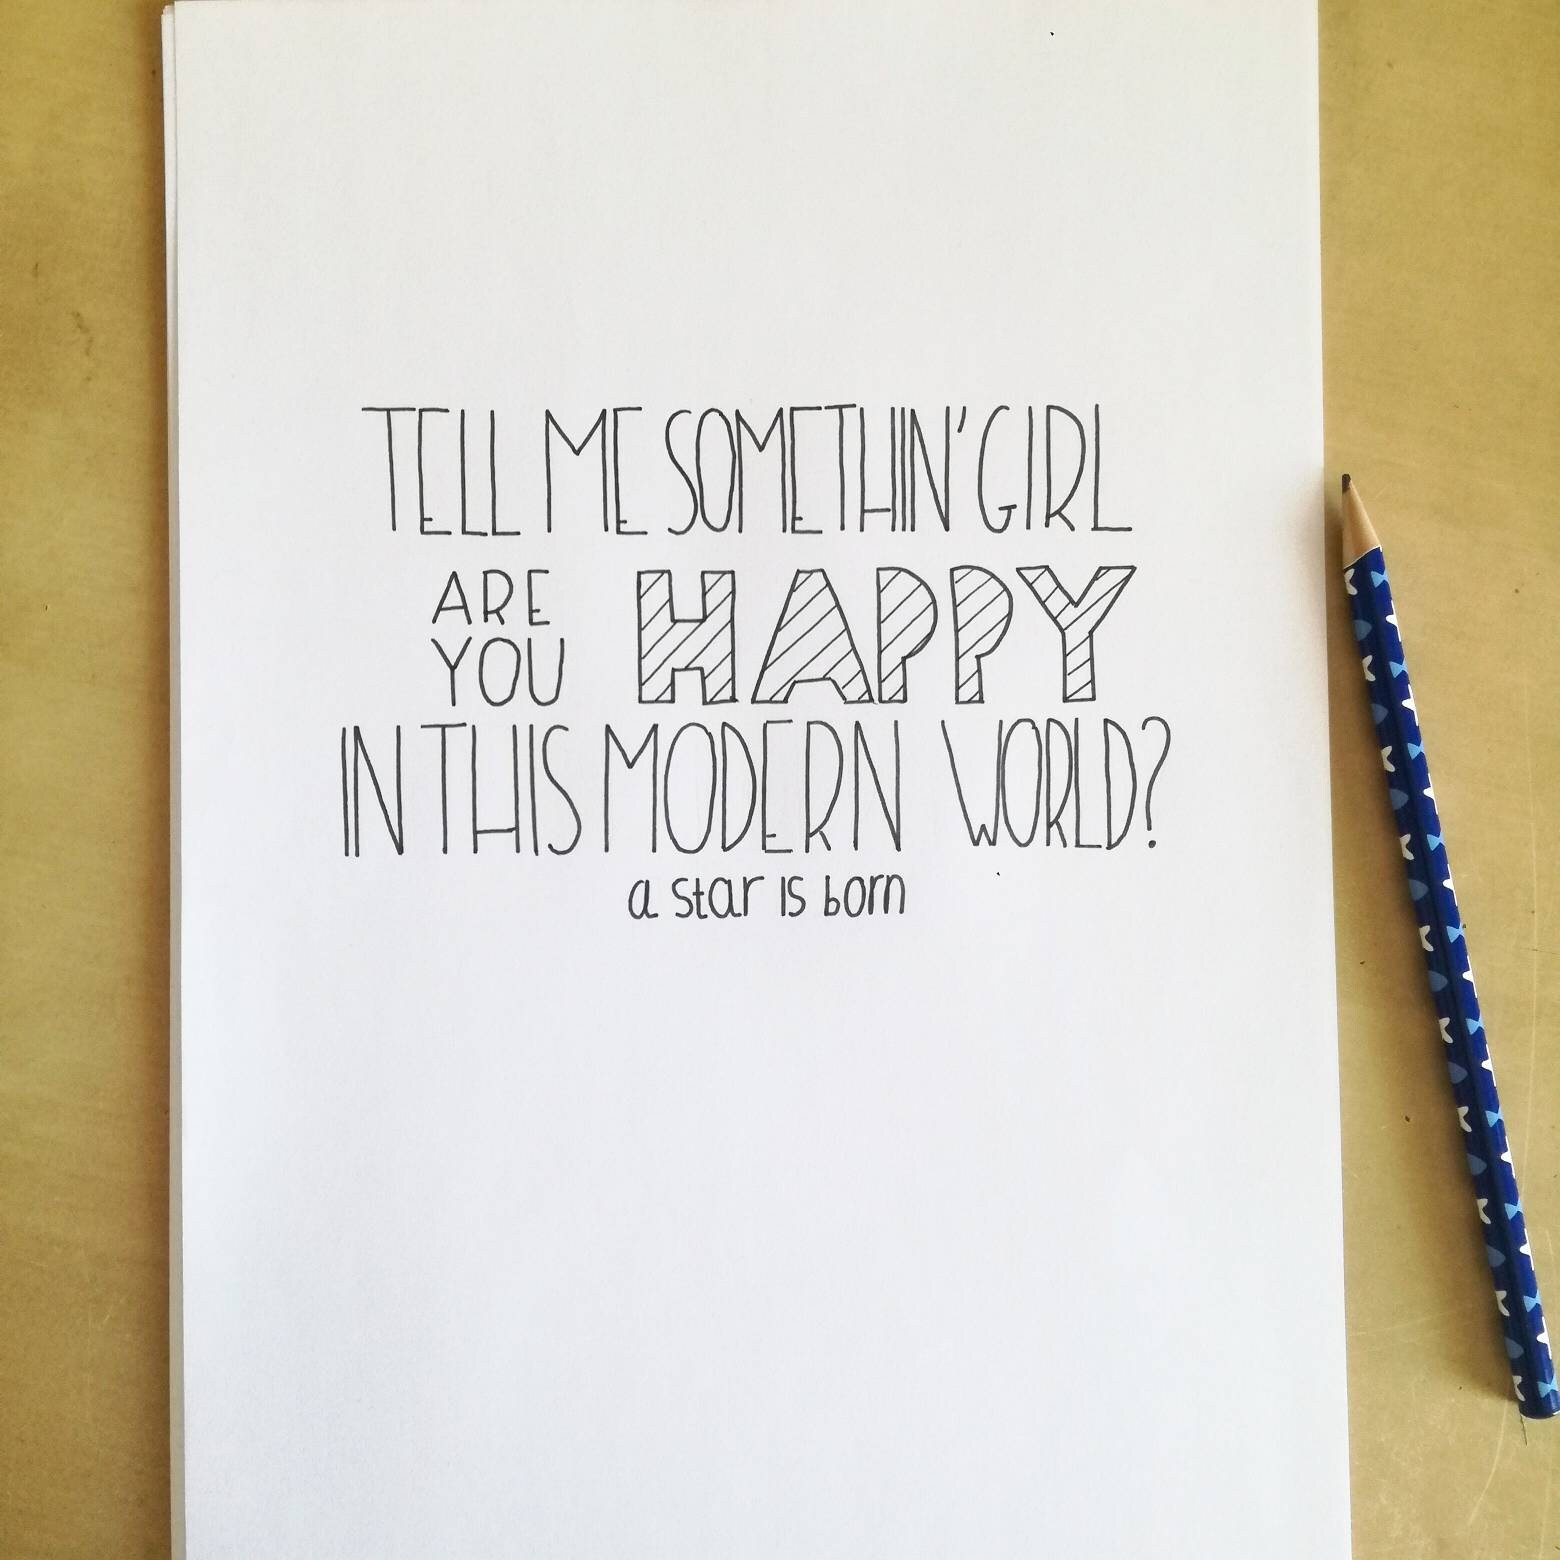 TELL ME SOMETHIN' GIRL
ARE
YOU HAPPY
IN THIS MODERN WORLD?
a star is born